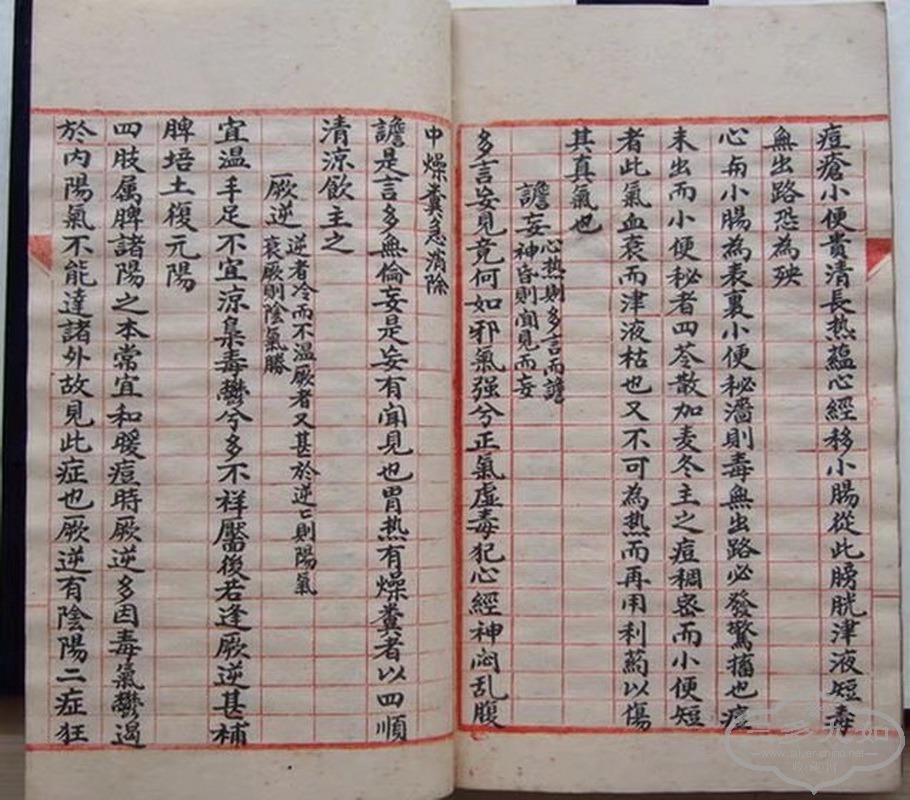 痘瘡小便貴清長热蘊心經移小腸從此膀胱津液短毒
無出路恐為殃
心与小腸為表裏小便秘濇則毒無出路必發驚搐也痘
未出而小便秘者四苓散加麦冬主之痘稠密而小便短
者此氣血衰而津液枯也又不可為热而再用利葯以傷
其真氣也
譫妄
心热則多言而譫
神昏則聞見而妄
多言妄見竟何如邪氣强兮正氣虛毒犯心經神闷乱腹
中燥糞急消除
譫是言多無倫妄是妄有聞見也胃热有燥糞者以四順
清凉飲主之
厥逆
逆者冷而不温厥者又甚於逆亡則陽氣
衰厥則陰氣勝
宜温手足不宜凉梟毒欝兮多不祥靨後若逢厥逆甚補
脾培土復元陽
四肢属脾諸陽之本常宜和暖痘時厥逆多因毒氣欝遏
於内陽氣不能達諸外故見此症也厥逆有陰陽二症狂
www.silver-china.net